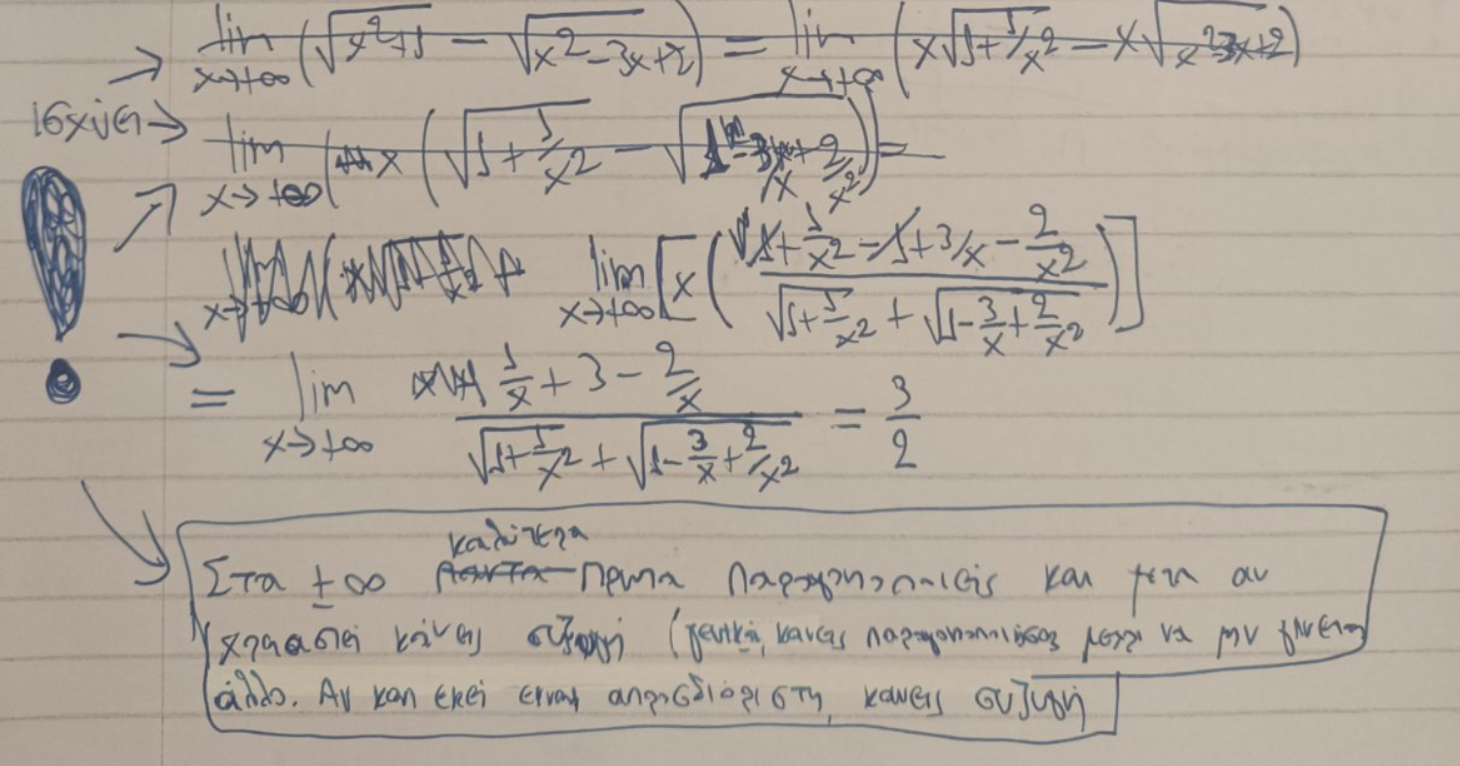 lim x→+∞ (√x²+1 − √x²−3x+2) = lim x→+∞ (x√1+1/x² − x√x²-3x+2)
ισχύει → lim x→+∞ ( x (√1+1/x² − √1-3/x+2/x²)) =
lim x→+∞ [x ( 1+1/x² −1+3/x − 2/x² / √1+1/x² + √1−3/x+2/x² )]
= lim x→+∞ 1/x + 3 − 2/x / √1+1/x² + √1−3/x+2/x² = 3/2
καλύτερα
Στα ± ∞ Παντα πρωτα παραγοντοποιεις και μετα αν
χρειαστεί κάνεις συζυγή (γενικά, κανεις παραγοντοποιησεις μεχρι να μην γινεται
άλλο. Αν και εκεί ειναι απροσδιόριστη, κανεις συζυγή